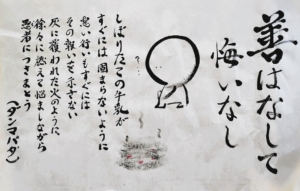 善はなして
悔いなし
しぼりたての牛乳が
すぐには固まらないように
悪い行いもすぐには
その報いを示さない
灰に覆われた火のように
徐々に燃えて悩ましながら
愚者につきまとう
(ダンマパダ)